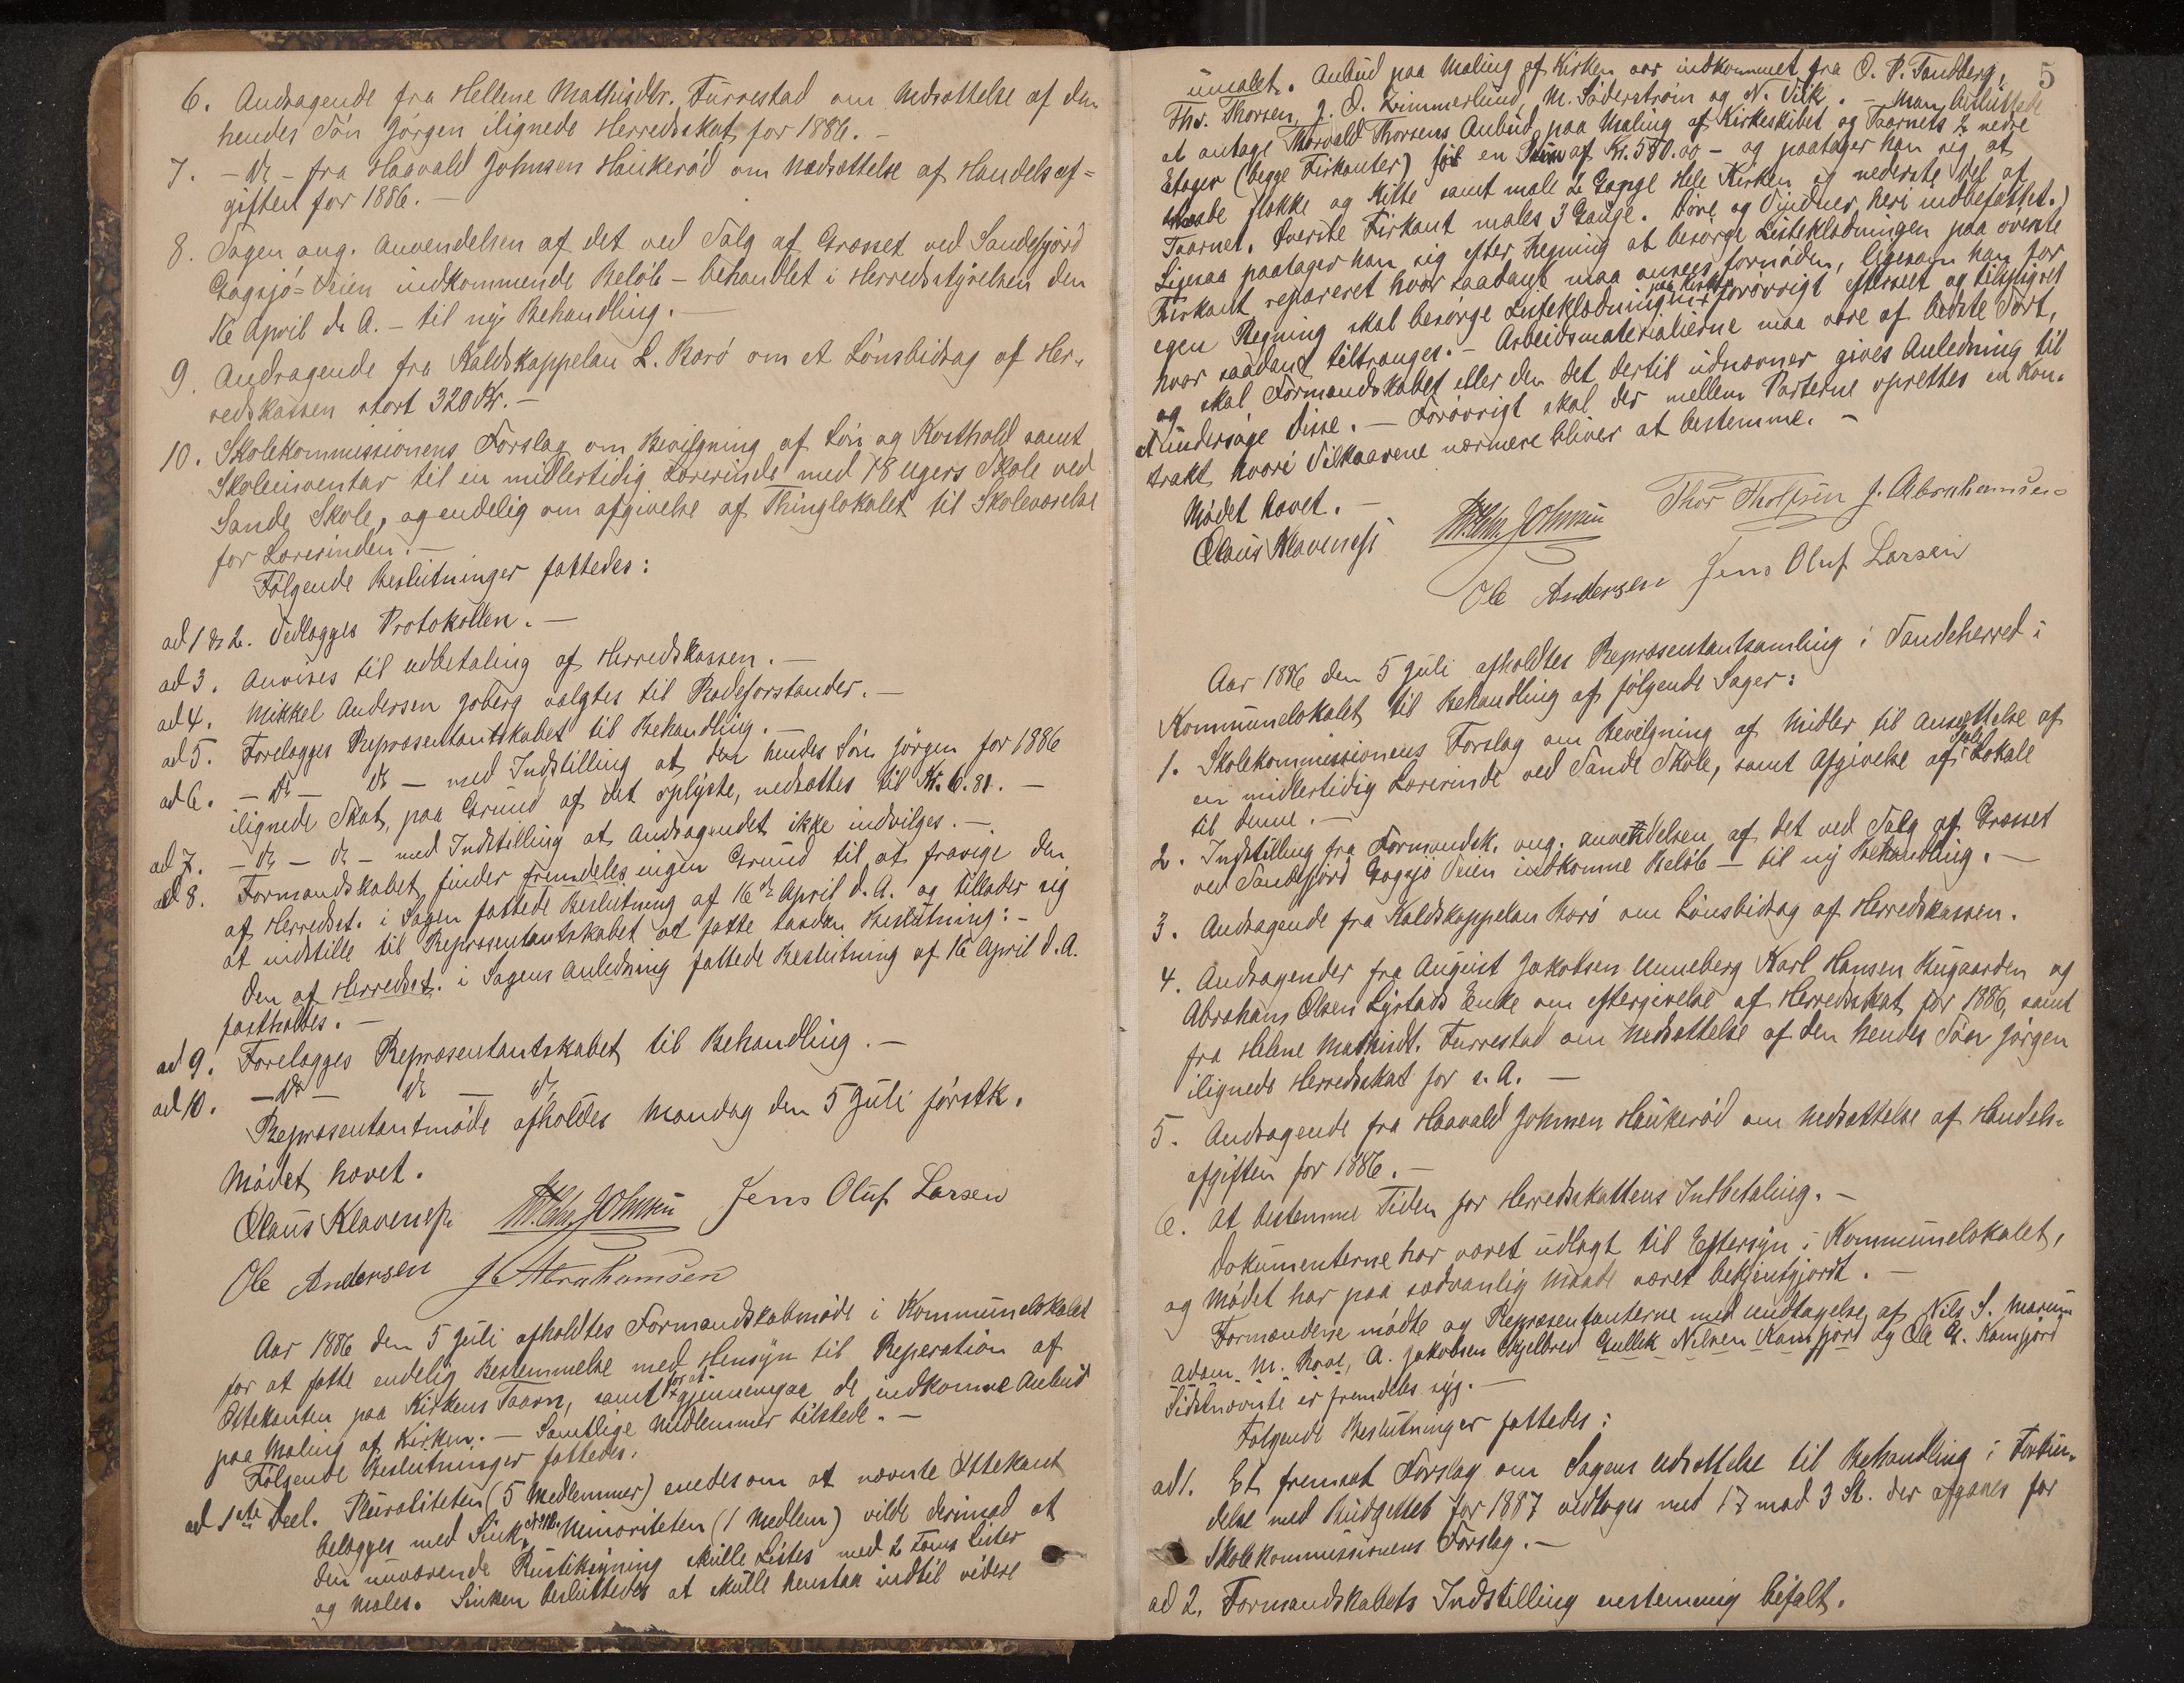 6. Andragende fra Hellene Mathisdtr. Furrestad om Nedsættelse af den
hendes Søn Jørgen ilignede Herredsskat for 1886. -
7. - Do - fra Haavald Johnsen Haukerød om Nedsættelse af Handelsaf=
giften for 1886. -
8. Sagen ang. Anvendelsen af det ved Salg af Græsset ved Sandefjord
Gogsjø=Veien indkommende Beløb - behandlet i Herredsstyrelsen den
16 April d. A. - til ny Behandling. -
9. Andragende fra Kaldskappelan L. Borø om et Lønsbidrag af Her-
redskassen stort 320 Kr. -
10. Skolekommissionens Forslag om Bevilgning af Løn og Kosthold samt
Skoleinventar til en midlertidig Lærerinde med 18 Ugers Skole ved
Sande Skole, og endelig om afgivelse af Thinglokalet til Skoleværelse
for Lærerinden. -
Følgende Beslutninger fattedes:
ad 1 & 2. Vedlægges Protokollen. -
ad 3. Anvises til udbetaling af Herredskassen. -
ad 4. Mikkel Andersen Joberg valgtes til Rodeforstander. -
ad 5. Forelægges Repræsentantskabet til Behandling. -
ad 6. - Do - Do - med Indstilling at den hendes Søn Jørgen for 1886
ilignede Skat, paa Grund af det oplyste, nedsættes til Kr. 6.81. -
ad 7. - Do - Do - med Indstilling at Andragendet ikke indvilges. -
ad 8. Formandskabet finder fremdeles ingen Grund til at fravige den
af Herredsst. i Sagen fattede Beslutning af 16de April d. A. og tillader sig
at indstille til Repræsentantskabet at fatte saadan Beslutning: -
Den af Herredsst. i Sagens Anledning fattede Beslutning af 16 April d. A.
fastholdes. -
ad 9. Forelægges Repræsentantskabet til Behandling. -
ad 10. - Do - Do - Do
Repræsentantmøde afholdes Mandag den 5 Juli førstk.
Mødet hævet.
Claus Klaveness M. Chr. Johnsen Jens Oluf Larsen
Ole Andersen J. Abrahamsen
Aar 1886 den 5 Juli afholdtes Formandskabmøde i Kommunelokalet
for at fatte endelig Bestemmelse med Hensyn til Reperation af
Ottekanten paa Kirkens Taarn, samt for at gjennemgaa de indkomne Anbud
paa Maling af Kirken. - Samtlige Medlemmer tilstede. -
Følgende Beslutninger fattedes:
ad 1ste Deel. Pluraliteten (5 Medlemmer) enedes om at nævnte Ottekant
belægges med Sink. Minoriteten (1 Medlem) vilde derimod at
den nuværende skulle Listes med 2 Toms Lister
og males. Sinken besluttedes at skulle henstaa indtil videre
5
umalet. Anbud paa Maling af Kirken var indkommet fra O. P. Tandberg,
Thv. Thorsen, J. O. Zimmerlund, M. Söderström og N. Vilk. - Man besluttede
at antage Thorvald Thorsens Anbud paa Maling af Kirkeskibet og Taarnets 2 nedre
Etager (begge Firkanter) for en Sum af Kr. 580.00 - og paatager han sig at
flække og kitte samt male 2 Gange Hele Kirken og nederste Del af
Taarnet. Øverste Firkant males 3 Gange. Døre og Vinduer heri indbefattet.)
Ligesaa paatager han sig efter Regning at besørge Listeklædningen paa øverste
Firkant repareret hvor saadant maa ansees fornøden, ligesom han for
egen Regning skal besørge Listeklædningen paa Kirken forøvrigt efterseet og tilspigret
hvor saadant tiltrænges. - Arbeidsmaterialierne maa være af bedste Sort,
og skal Formandskabet eller den det dertil udnævner gives Anledning til
at undersøge disse. - Forøvrigt skal der mellem Parterne oprettes en Kon-
trakt, hvori Vilkaarene nærmere bliver at bestemme. -
Mødet hævet. -
Claus Klaveness M. Chr. Johnsen Thor Tholfsen J. Abrahamsen
Ole Andersen Jens Oluf Larsen
Aar 1886 den 5 Juli afholdtes Repræsentantsamling i Sandeherred i
Kommunelokalet til Behandling af følgende Sager:
1. Skolekommissionens Forslag om Bevilgning af Midler til Ansættelse af
en midlertidig Lærerinde ved Sande Skole, samt Afgivelse af Skole Lokale
til denne. -
2. Indstilling fra Formandsk. ang. anvendelsen af det ved Salg af Græsset
ved Sandefjord Gogsjø Veien indkomne Beløb - til ny Behandling. -
3. Andragende fra Kaldskappelan Borø om Lønsbidrag af Herredskassen.
4. Andragender fra August Jakobsen Unneberg Karl Hansen Hugaarden og
Abraham Olsen Lystads Enke om eftergivelse af Herredsskat for 1886, samt
fra Helene Mathisdt. Furrestad om Nedsættelse af den hendes Søn Jørgen
ilignede Herredsskat for s. A. -
5. Andragende fra Haavald Johnsen Haukerød om Nedsættelse af Handels-
afgiften for 1886. -
6. At bestemme Tiden for Herredsskattens Indbetaling. -
Dokumenterne har været udlagt til Eftersyn i Kommunelokalet,
og Mødet har paa sædvanlig Maade været bekjentgjordt. -
Formændene mødte og Repræsentanterne med undtagelse af Nils S. Marum
Adam M. Rove, A. Jakobsen Skjelbred Gullik Nilsen Kamfjord og Ole G. Kamfjord
Sidstnævnte er fremdeles syg. -
Følgende Beslutninger fattedes:
ad 1. Et fremsat Forslag om Sagens Udsættelse til Behandling i Forbin-
delse med Budgettet for 1887 vedtoges med 17 mod 3 St. der afgaves for
Skolekommissionens Forslag. -
ad 2. Formandskabets Indstilling enstemmig bifalt.